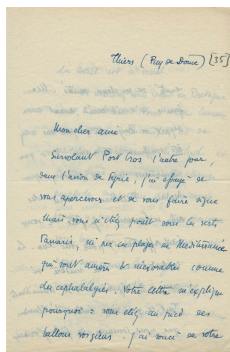 Thiers (Puy de Dome) [35]
Mon cher ami
Survolant Port Cros l'autre jour,
dans l'avion de Syrie, j'ai essayé de
vous apercevoir et de vous faire signe
mais vous n'étiez point sous les verts
Panaris, ni sur ces plages de Méditerranée
qui sont amères & inexorables comme
du cephalalgies. Votre lettre m'explique
pourquoi : vous étiez au pied des
ballons vosgiens. J'ai de votre